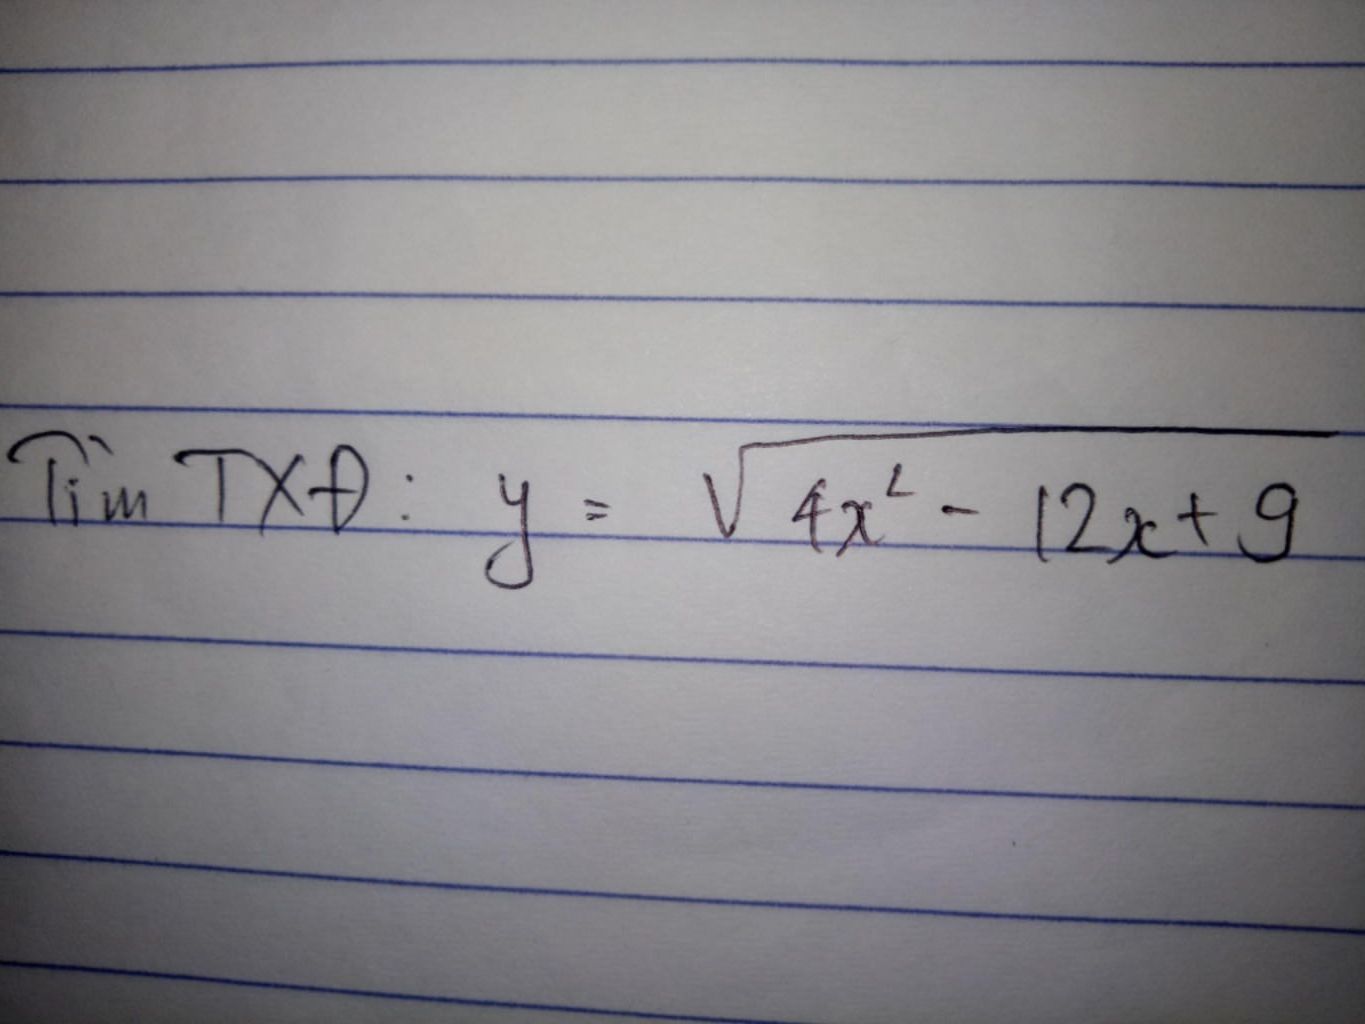 Tìm TXĐ: y = √(4x² - 12x + 9)